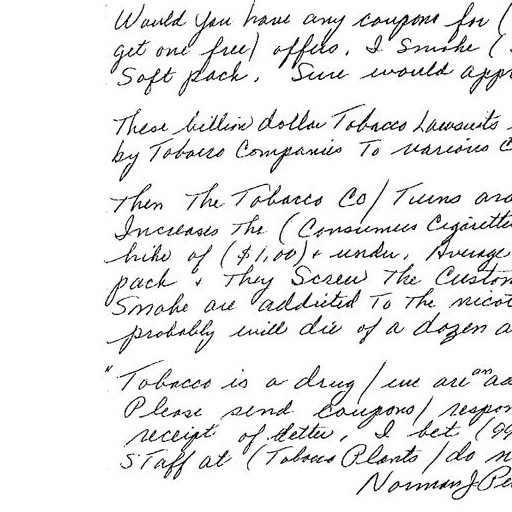 Would you have any coupons for (
get one free) offers. I Smoke (
Soft pack. Sure would appr
These billion dollar Tobacco Lawsuits
by Tobacco Companies To various C
Then The Tobacco Co/ Turns aro
Increases The (Consumers Cigarette
hike of ($1.00) + under. Average
pack + They Screw The Custom
Smoke are addicted To The nicot
probably will die of a dozen a
"Tobacco is a drug/ we are an ad
Please send coupons/ respon
receipt of letter. I bet (99
Staff at (Tobacco Plants / do n
Norman J Pe